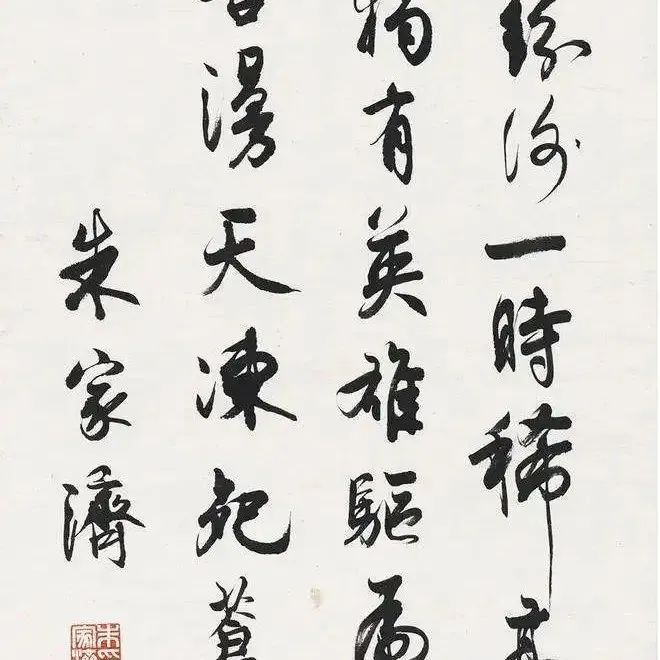 紛謝一時稀高
獨有英雄驅虎
漫天凍死蒼
朱家濟